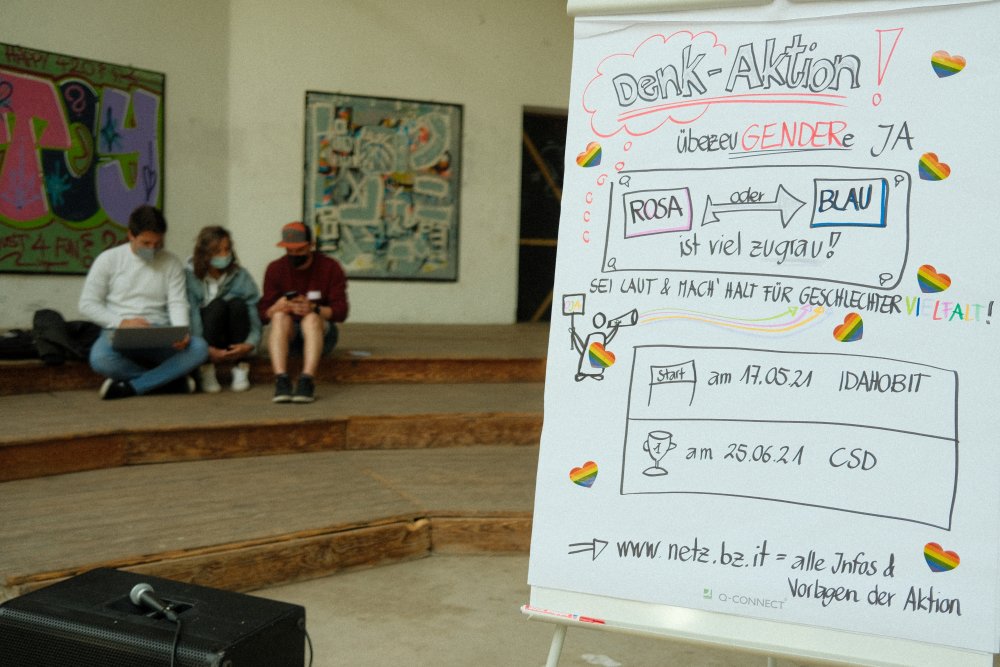 HAPPY 420
TOY
JUST 4 FUN
Denk-Aktion!
überzeuGENDERe JA
ROSA oder BLAU
ist viel zu grau!
SEI LAUT & MACH' HALT FÜR GESCHLECHTERVIELFALT!
Start am 17.05.21 IDAHOBIT
1 am 25.06.21 CSD
www.netz.bz.it = alle Infos &
Vorlagen der Aktion
Q-CONNECT